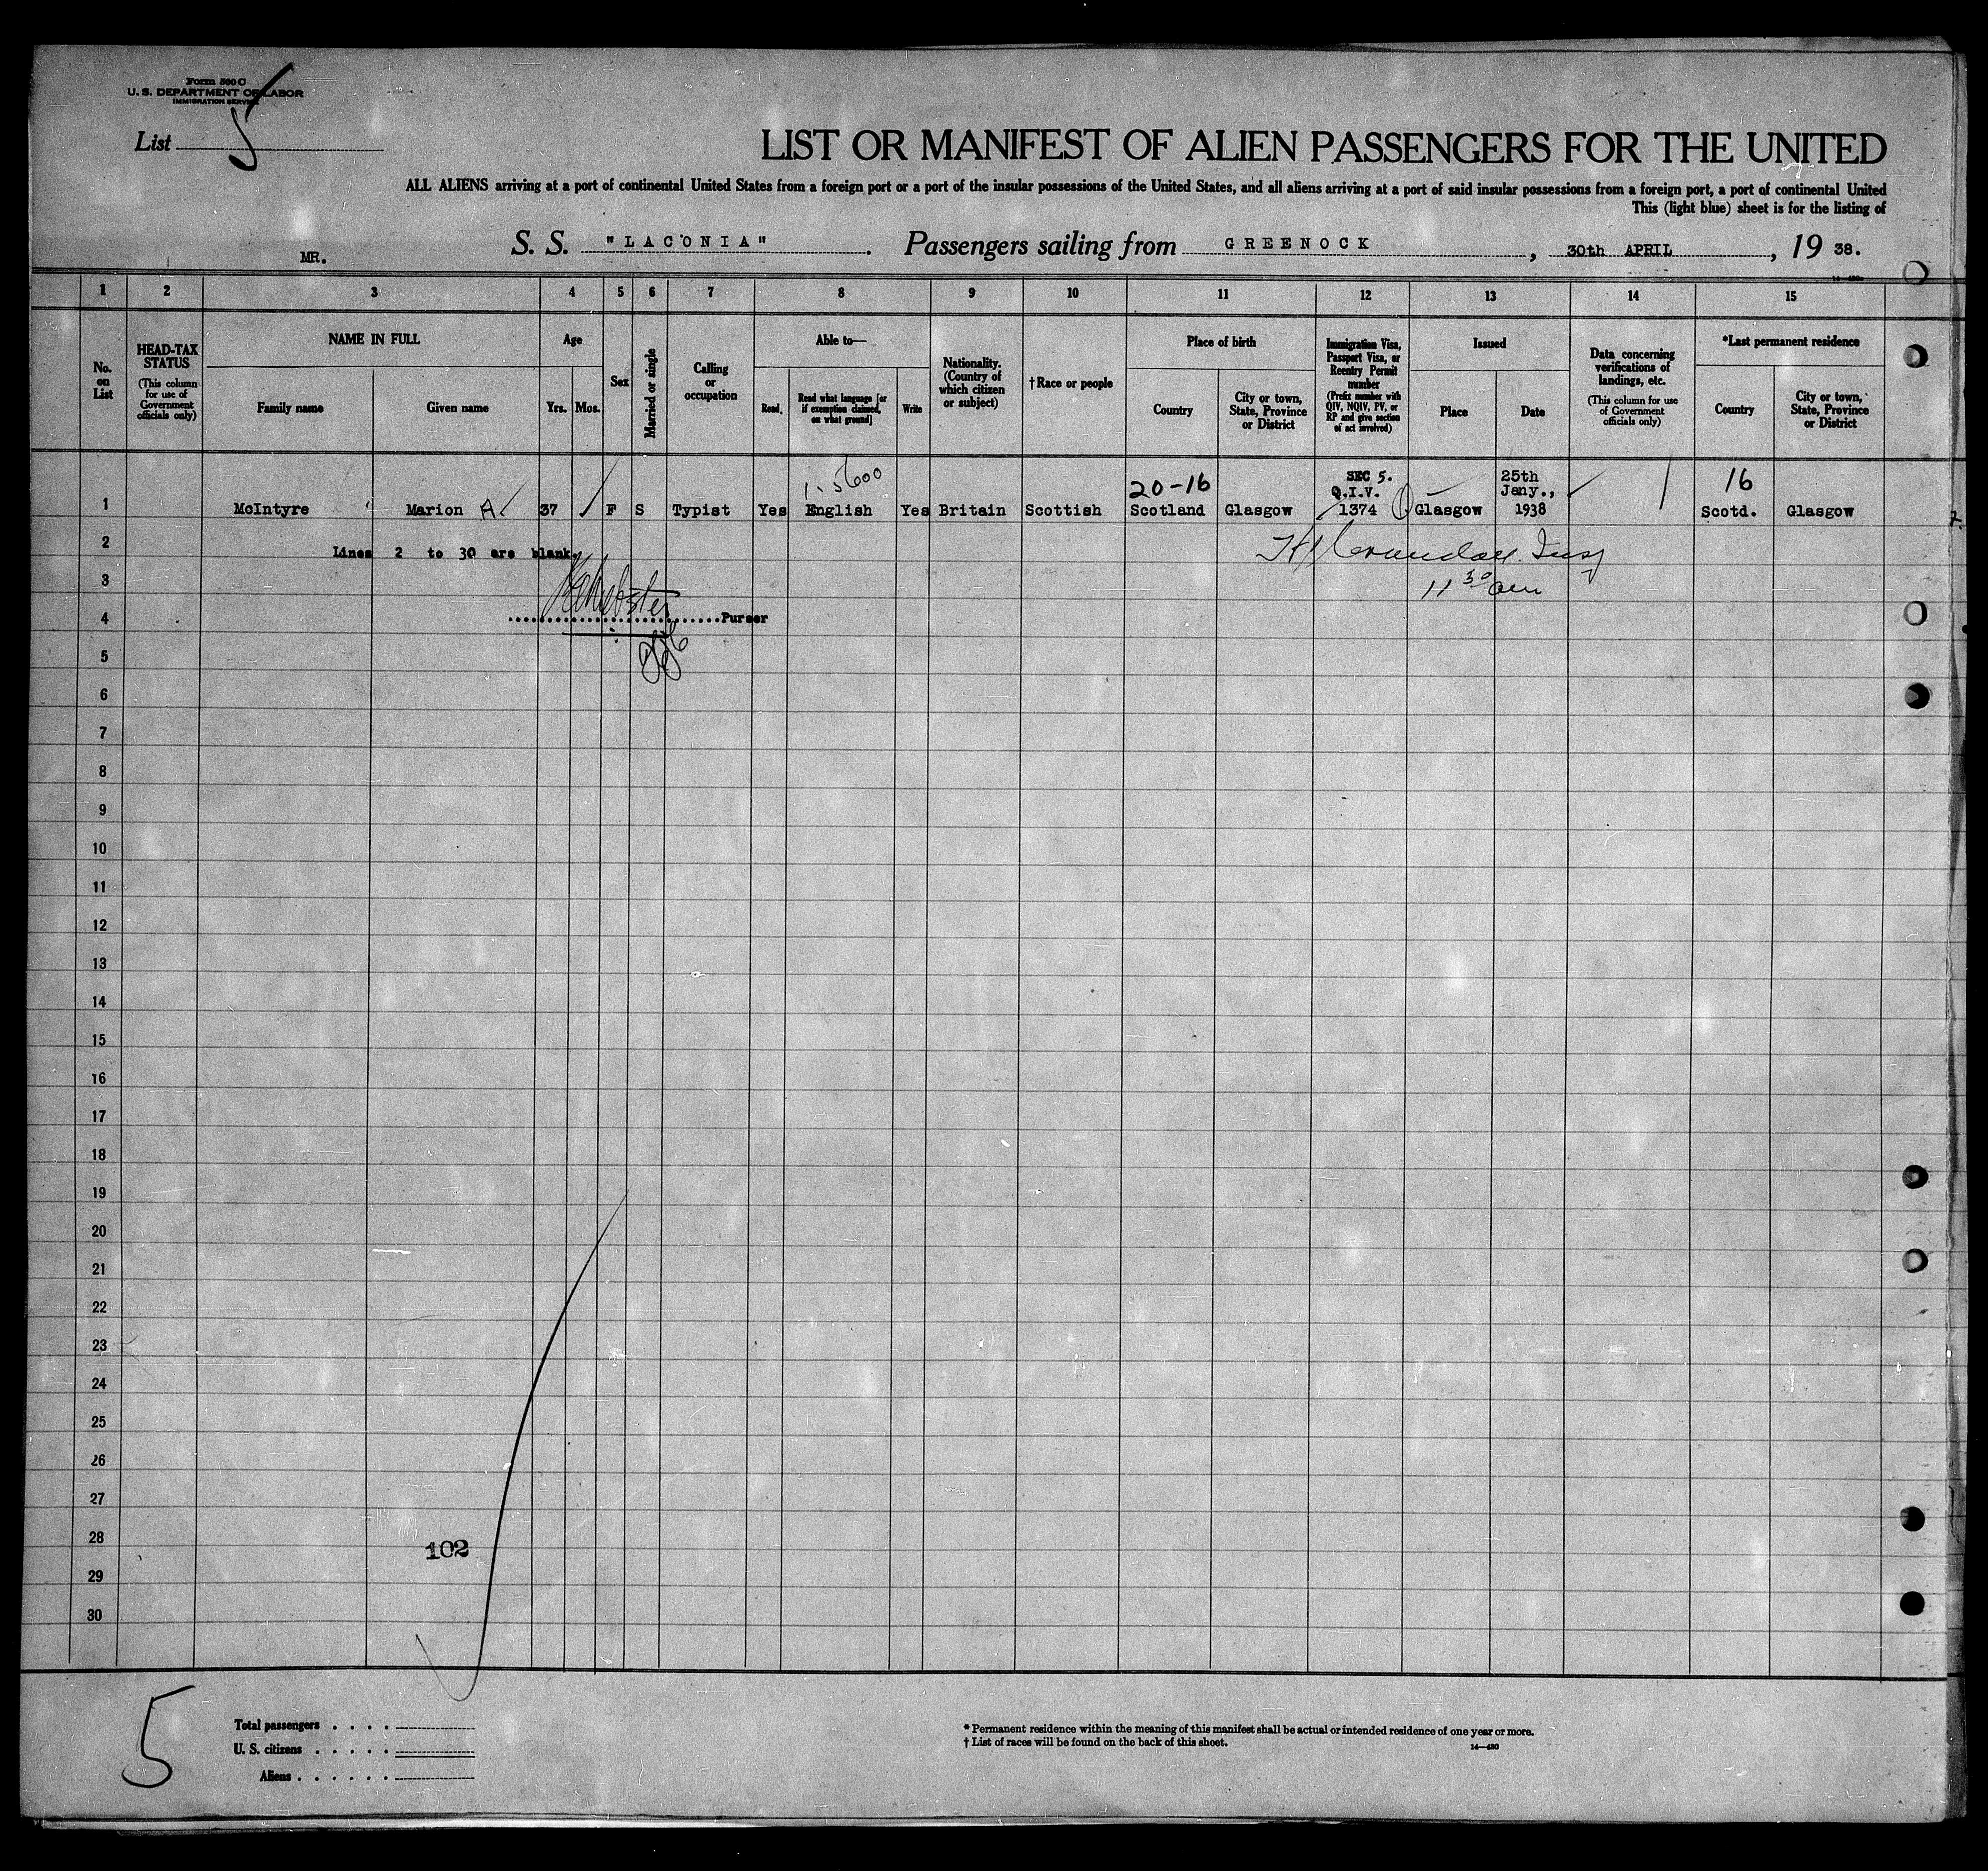 Form 500 C
U. S. DEPARTMENT OF LABOR
IMMIGRATION SERVICE
List 5
LIST OR MANIFEST OF ALIEN PASSENGERS FOR THE UNITED
ALL ALIENS arriving at a port of continental United States from a foreign port or a port of the insular possessions of the United States, and all aliens arriving at a port of said insular possessions from a foreign port, a port of continental United
This (light blue) sheet is for the listing of
MR. S. S. "LACONIA". Passengers sailing from GREENOCK, 30th APRIL, 19 38.
1 2 3 4 5 6 7 8 9 10 11 12 13 14 15
No. on List
HEAD-TAX STATUS
(This column for use of Government officials only)
NAME IN FULL
Family name
Given name
Age
Yrs. Mos.
Sex
Married or single
Calling or occupation
Able to—
Read,
Read what language [or if exemption claimed, on what ground]
Write
Nationality. (Country of which citizen or subject)
†Race or people
Place of birth
Country
City or town, State, Province or District
Immigration Visa, Passport Visa, or Reentry Permit number
(Prefix number with QIV, NQIV, PV, or RP and give section of act involved)
Issued
Place
Date
Data concerning verifications of landings, etc.
(This column for use of Government officials only)
*Last permanent residence
Country
City or town, State, Province or District
5600
20-16
SEC 5.
25th
16
Q.I.V.
Jany.,
1 McIntyre Marion A 37 F S Typist Yes English Yes Britain Scottish Scotland Glasgow 1374 Glasgow 1938 Scotd. Glasgow
2 Lines 2 to 30 are blank.
3 11 30 am
4 Purser
5
6
7
8
9
10
11
12
13
14
15
16
17
18
19
20
21
22
23
24
25
26
27
28 102
29
30
5
Total passengers . . . .
U. S. citizens . . . . .
Aliens . . . . . .
* Permanent residence within the meaning of this manifest shall be actual or intended residence of one year or more.
† List of races will be found on the back of this sheet.
14—480